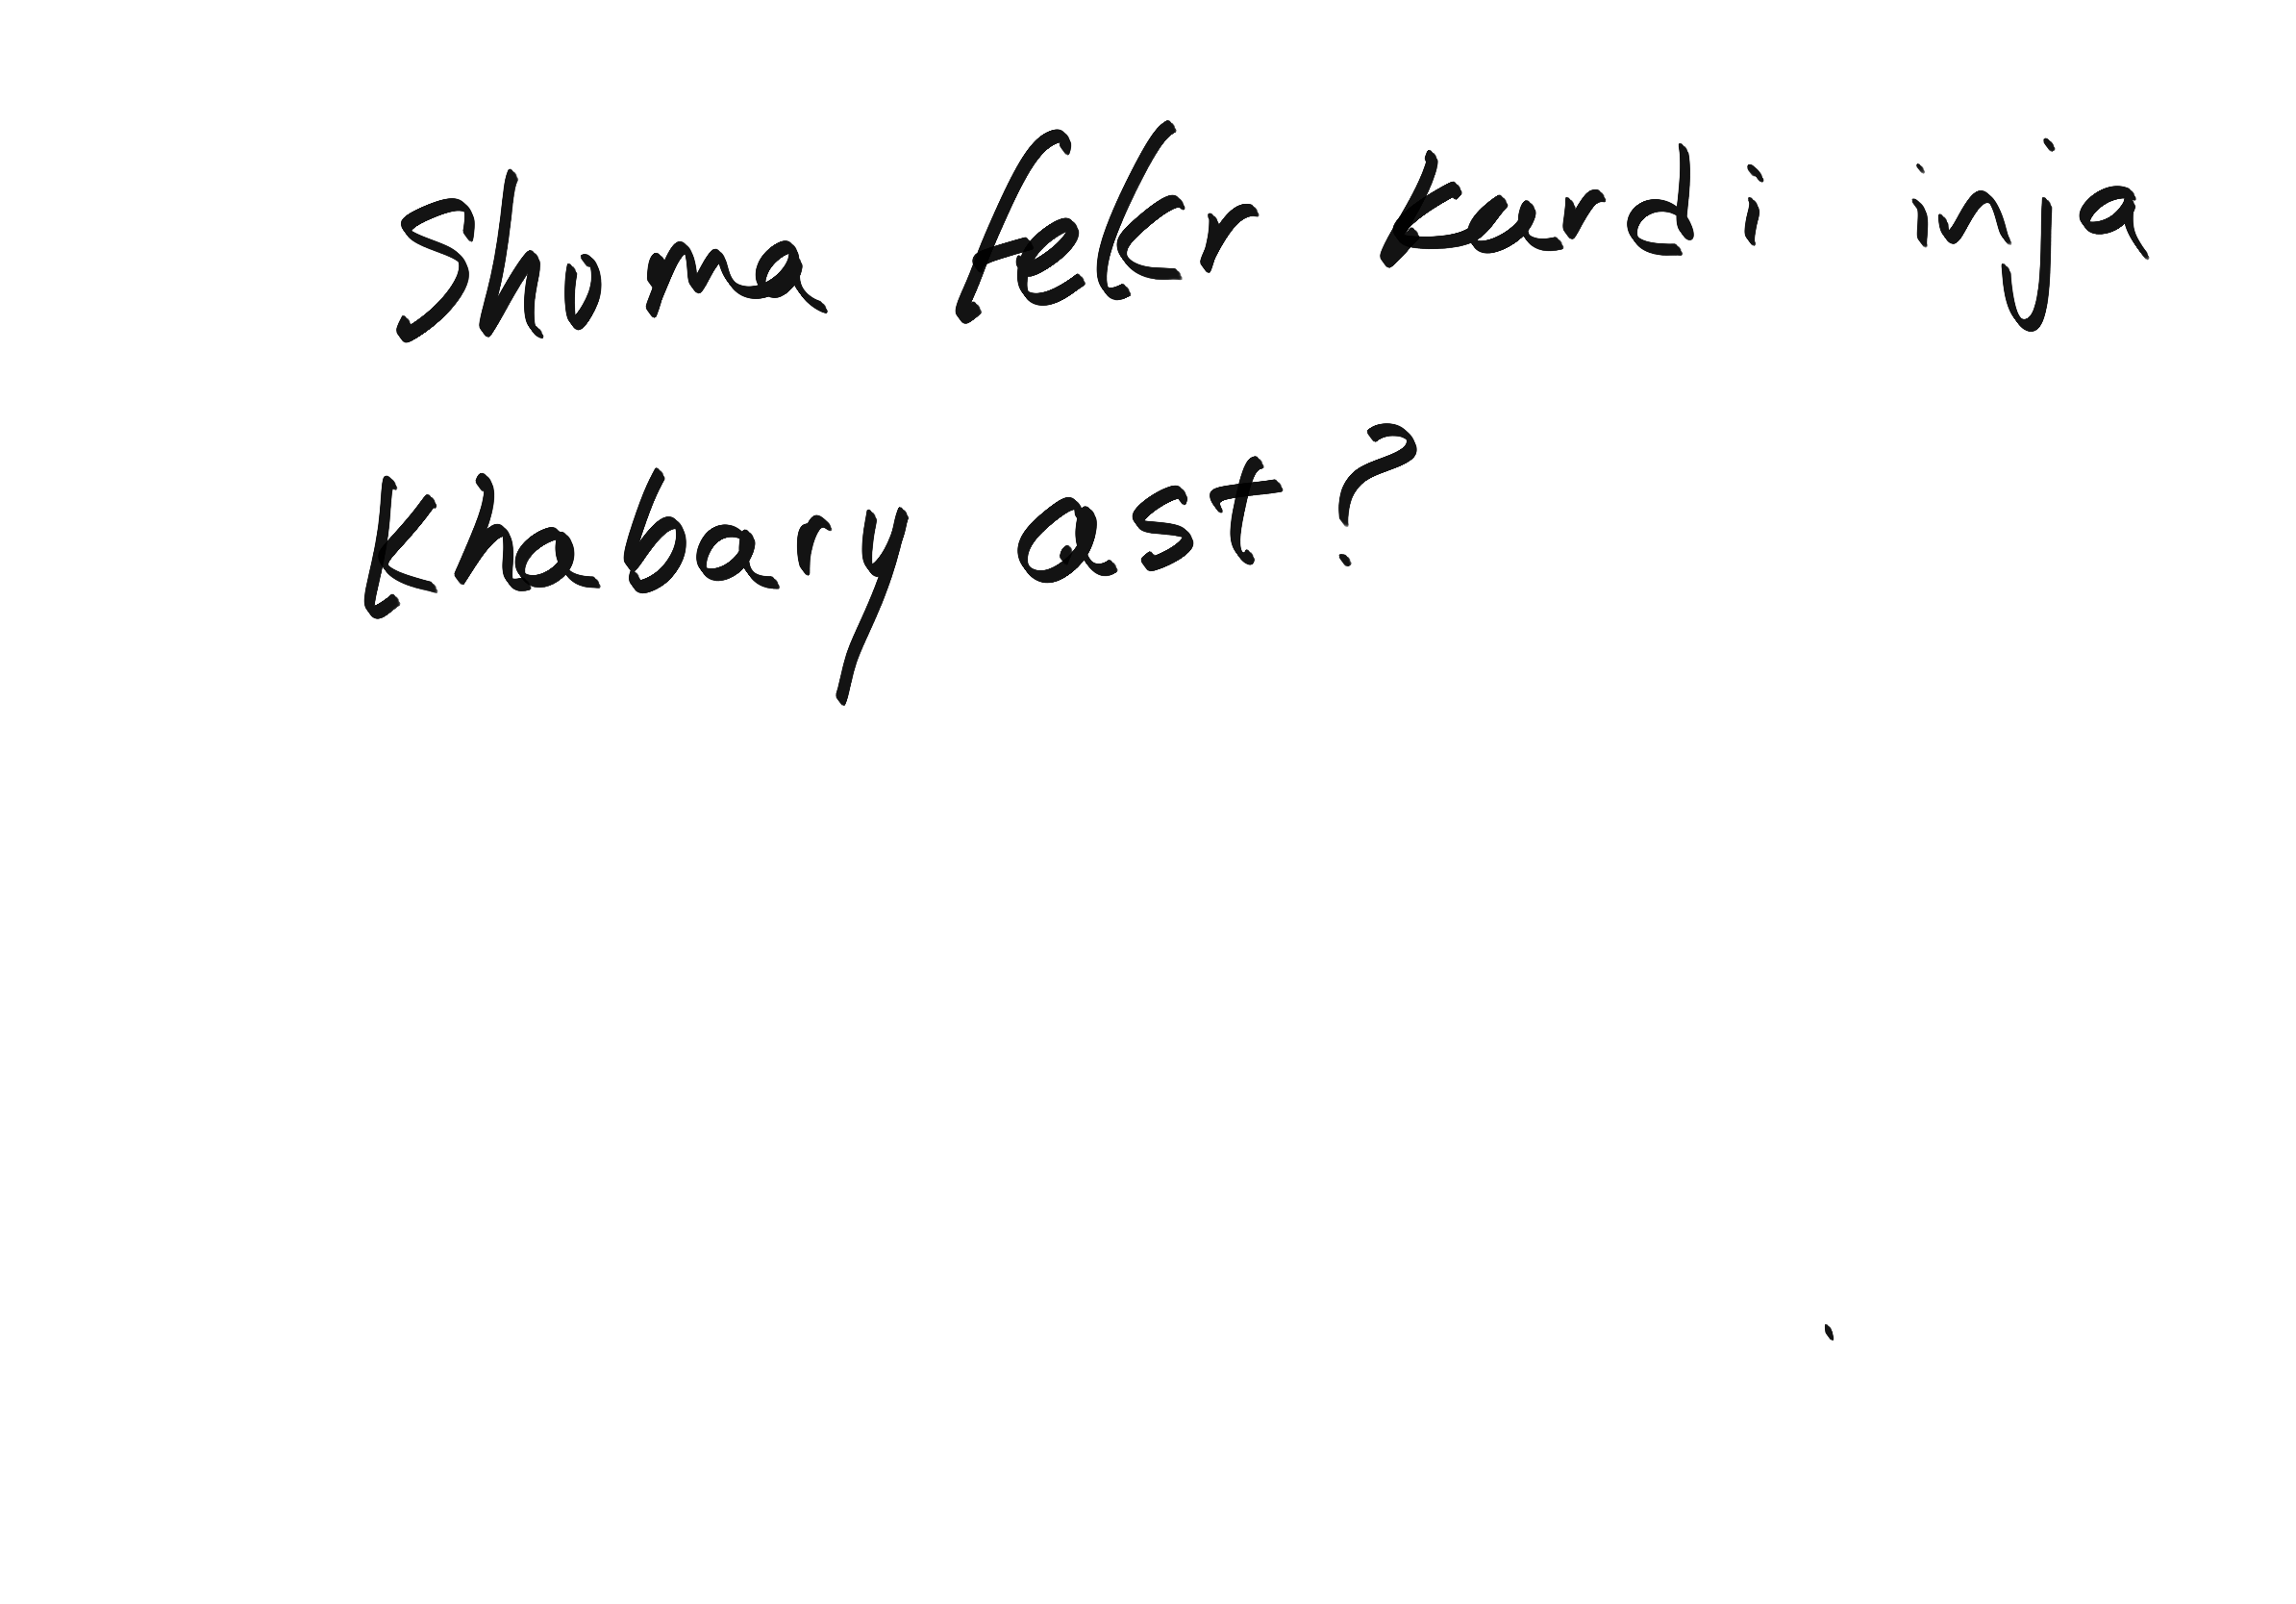 Shuma fekr kardi inja
Khabary ast?